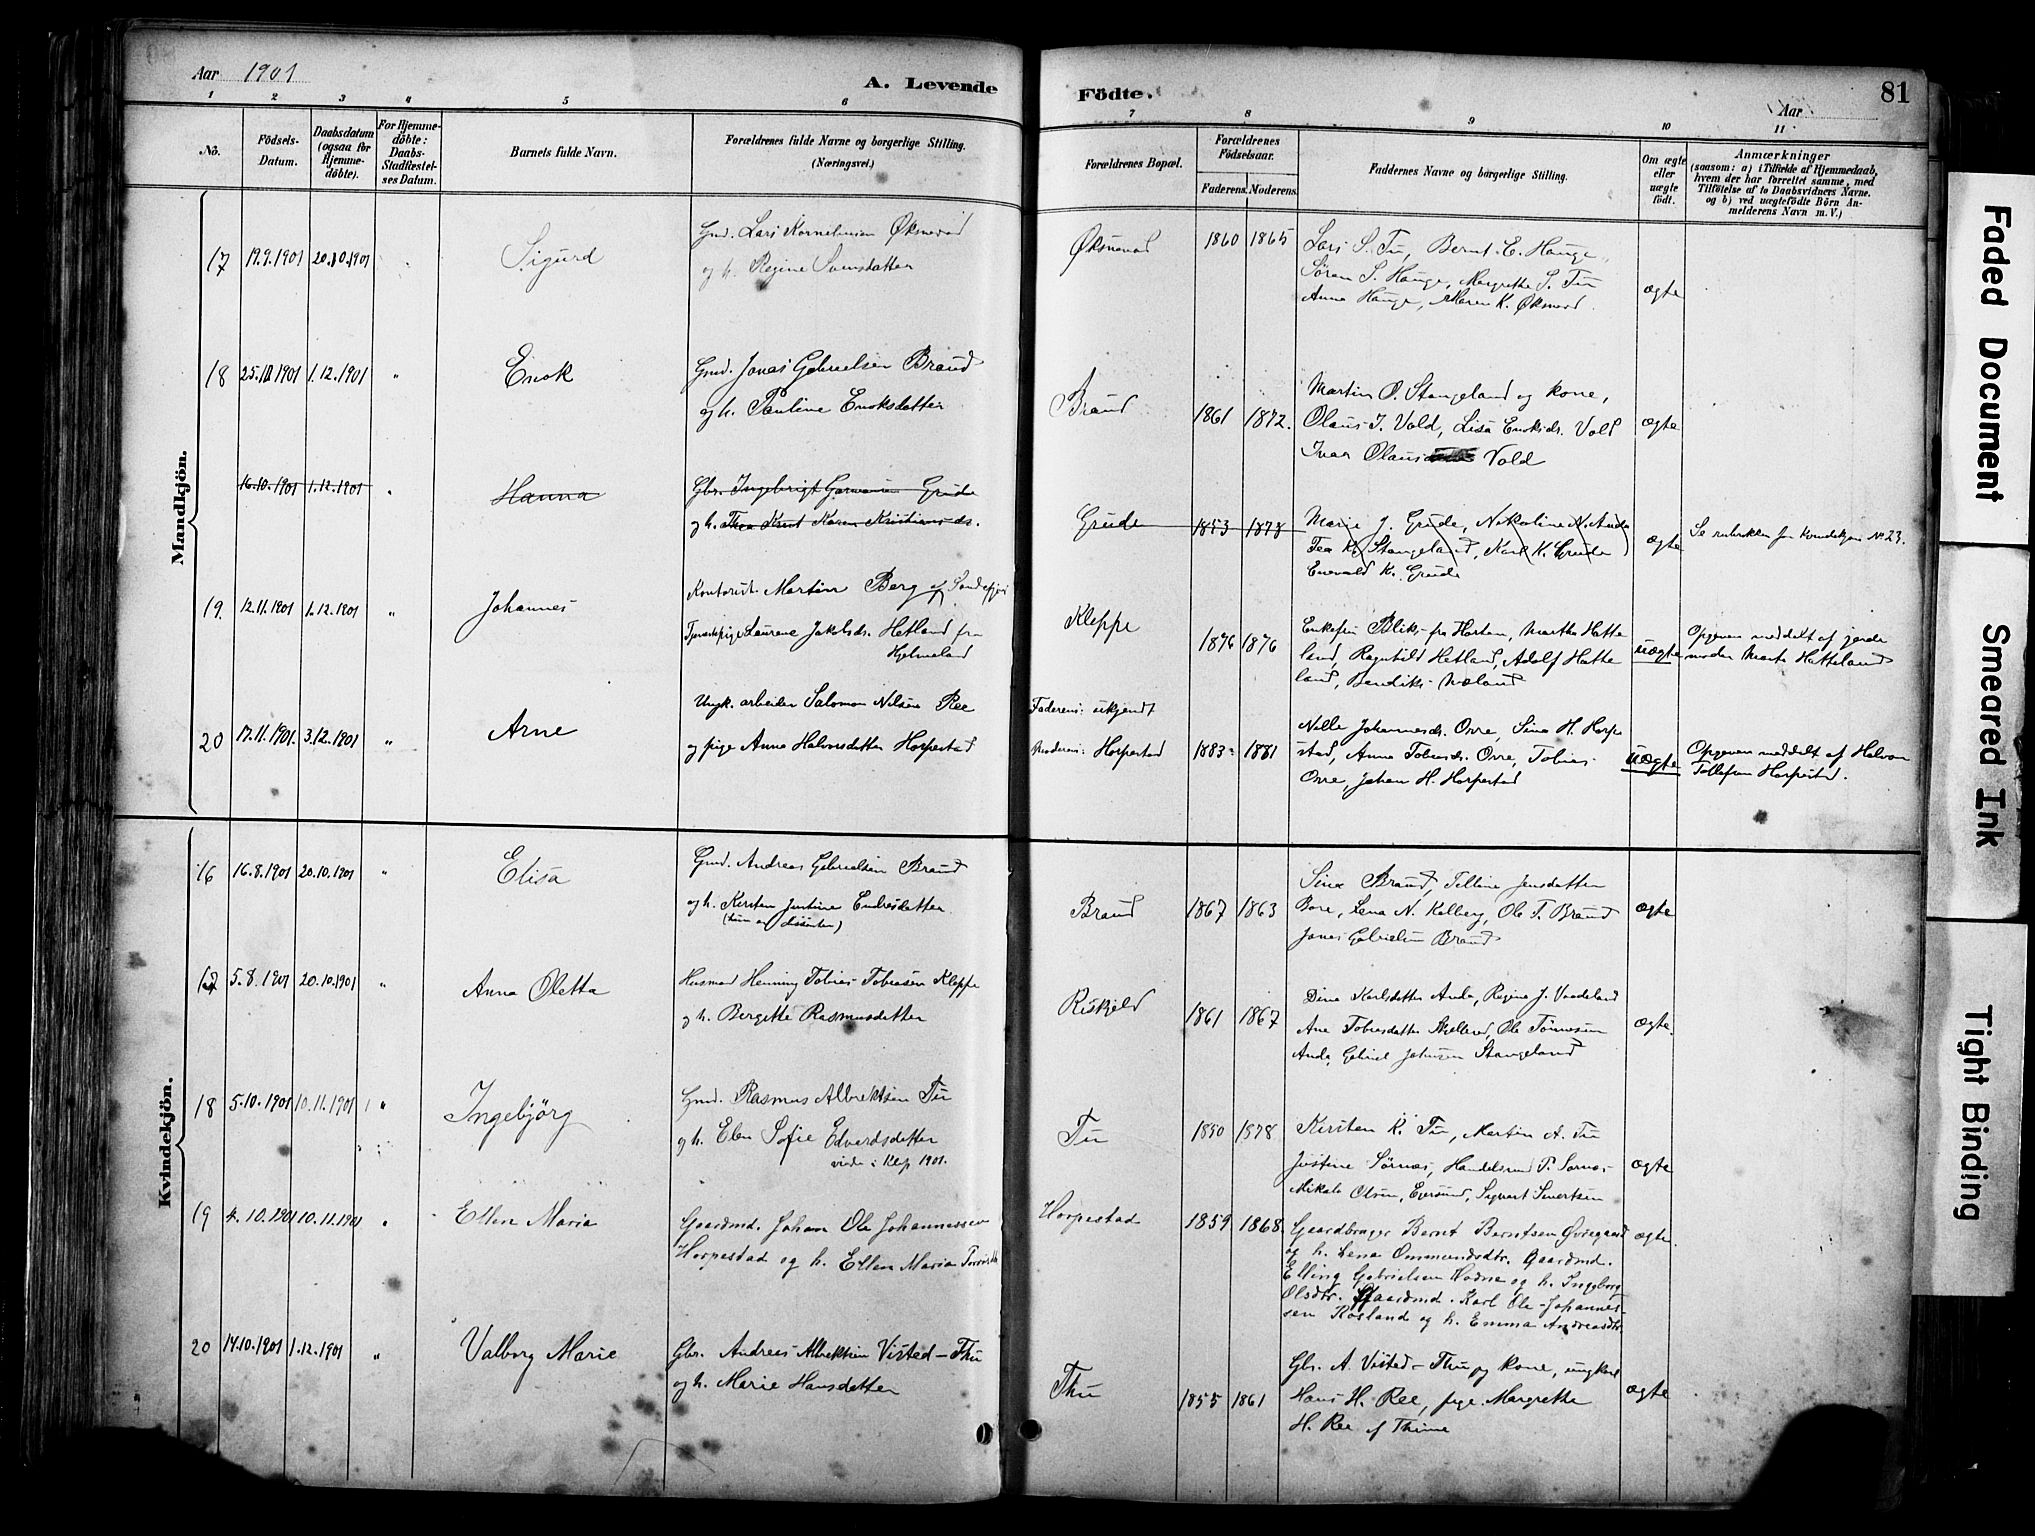 Aar 1901
A. Levende
Födte.
Aar
81
1 2 3 4 5 6 7 8 9 10 11
No.
Födsels-Datum.
Daabsdatum (ogsaa for Hjemme-döbte).
For Hjemme-döbte: Daabs-Stadfæstel-ses Datum.
Barnets fulde Navn.
Forældrenes fulde Navne og borgerlige Stilling. (Næringsvei.)
Forældrenes Bopæl.
Forældrenes Födselsaar.
Faderens. Moderens.
Faddernes Navne og borgerlige Stilling.
Om ægte eller uægte födt.
Anmærkninger (saasom: a) i Tilfælde af Hjemmedaab, hvem der har forrettet samme, med Tilföielse af to Daabsvidners Navne. og b) ved uægtefödte Börn An-melderens Navn m. V.)
Mandkjön.
17 19.9.1901 20.10.1901 " Sigurd
Gmd. Lars Kornelinsen Øksnevad
og h. Regine Svensdatter
Øksnevad 1860 1865
Lars S. Tu, Bernt E. Hauge,
Sören S. Hauge, Margrethe S. Tu
Anna Hauge, Maren K. Øksnevad
ægte
18 25.10.1901 1.12.1901 " Enok
Gmd. Jonas Gabrielsen Braud
og h. Pauline Enoksdatter
Braud 1861 1872.
Martin O. Stangeland og kone,
Olaus J. Vold, Lisa Enoksds. Vold
Ivar Olaus Vold
ægte
16.10.1901 1.12.1901 " Hanna
Gbr. Ingebrigt Grude
og h. Karen Kristiansds.
Grude 1853 1878
Marie J. Grude, Nikoline K. Anda
Tea K. Stangeland, Karl K. Grude
Enevald K. Grude
ægte
Se rubrikken for kvindekjøn No 23.
19. 12.11.1901 1.12.1901 " Johannes
Kontorist. Martin Berg af Sandefjord
Tjenestepige Laurene Jakobsds. Hetland fra
Hjelmeland
Kleppe 1876 1876
Enkefru Bliks fra Horten, Martha Hatte
land, Ragnhild Hetland, Adolf Hatte
land, Bendik Mæland
uægte
Opgaven meddelt af jorde
moder Marta Hatteland
20 17.11.1901. 3.12.1901 " Arne
Ungk. arbeider Salomon Nilsen Ree
og pige Anna Halvorsdatter Horpestad
Faderens: ukjendt
Moderens: Horpestad 1883 1881
Nelle Johannesds. Orre, Sina H. Horpe
stad, Anna Tobiasds. Orre, Tobias
Orre, Johan H. Horpestad
uægte
Opgaven meddelt af Halvor
Tollefsen Horpestad.
Kvindekjön.
16 16.8.1901 20.10.1901 " Elisa
Gmd. Andreas Gabrielsen Braud
og h. Kirsten Justine Endresdatter
Braud 1867 1863
Sina Braud, Tilline Jensdatter
Bore, Lena N. Kalberg, Ole T. Braud
Jonas Gabrielsen Braud
ægte
17 5.8.1901 20.10.1901 " Anna Oletta
Husmand Henning Tobias Tobiasen Kleppe
og h. Bergitte Rasmusdatter
Riskjeld 1861 1867
Dina Karlsdatter Anda, Regine J. Vaadeland
Ane Tobiasdatter, Ole Tönnesen
Anda, Gabriel Johnsen Stangeland
ægte.
18 5.10.1901 10.11.1901 " Ingebjörg
Gmd. Rasmus Albrektsen Tu
og h. Elen Sofie Edvardsdatter
viede i Klep 1901.
Tu 1850 1878
Kirsten K. Tu, Martin A. Tu
Justine Sørnæs, Handelsmd P. Sørnæs
Mikala Olsen, Egersund, Sigvart Sivertsen
ægte
19 4.10.1901 10.11.1901 " Ellen Maria
Gaardmd. Johan Ole Johannessen
Horpestad og h. Ellen Maria
Horpestad 1859 1868.
Gaardbruger Bernt Berntsen Øvregaard
og h. Lena Ommundsdtr. Gaardmd.
Elling Gabrielsen Hodne og h. Ingeborg
Olsdtr. Gaardmd. Karl Ole Johannes-
sen Rosland og h. Emma Andreasdtr.
ægte.
20 14.10.1901 1.12.1901 " Valborg Marie
Gbr. Andreas Albrektsen Visted – Thu
og h. Marie Hansdatter
Thu 1855 1861
Gbr. A. Visted – Thu og kone, ungkarl
Hans H. Ree, pige Margrethe
H. Ree af Thime
ægte
Faded Document
Smeared Ink
Tight Binding